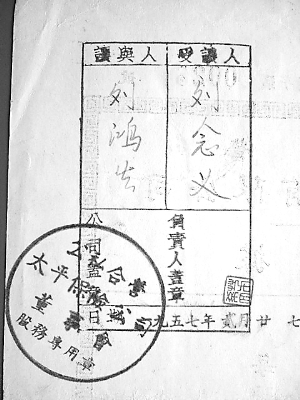 讓與人 受讓人
刘鸿生
刘念义
公司蓋章
負責人蓋章
公私合營
太平保險公司
董事會
股務專用章
九五七年貳月廿七